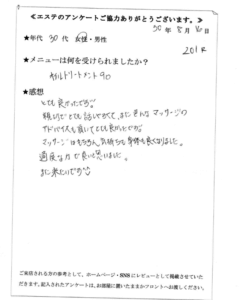 ≪エステのアンケートご協力ありがとうございます。≫
30年 8月 16日
★年代 30代 女性・男性
201R
★メニューは何を受けられましたか?
オイルトリートメント90
★感想
とても良かったです♡
マッサージの
アドバイスも頂いてとても良かったです
マッサージはもちろん、気持ちも身体も良くなりました。
適度な力で良いと思いました。
また来たいです
ご来店される方の参考として、ホームページ・SNSにレビューとして掲載させていた
だきます。記入されたアンケートは、お部屋に置いたままかフロントへお渡しください。